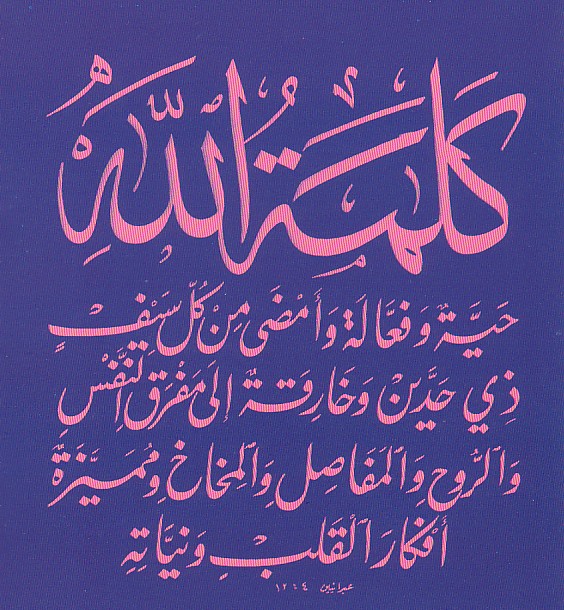 كَلِمَةُ اللّٰهِ
حَيَّةٌ وَفَعَّالَةٌ وَأَمْضَى مِنْ كُلِّ سَيْفٍ
ذِي حَدَّيْنِ وَخَارِقَةٌ إِلَى مَفْرَقِ النَّفْسِ
وَالرُّوحِ وَالمَفَاصِلِ وَالمِخَاخِ وَمُمَيِّزَةٌ
أَفْكَارَ القَلْبِ وَنِيَّاتِهِ
عبرانيين ٤ : ١٢